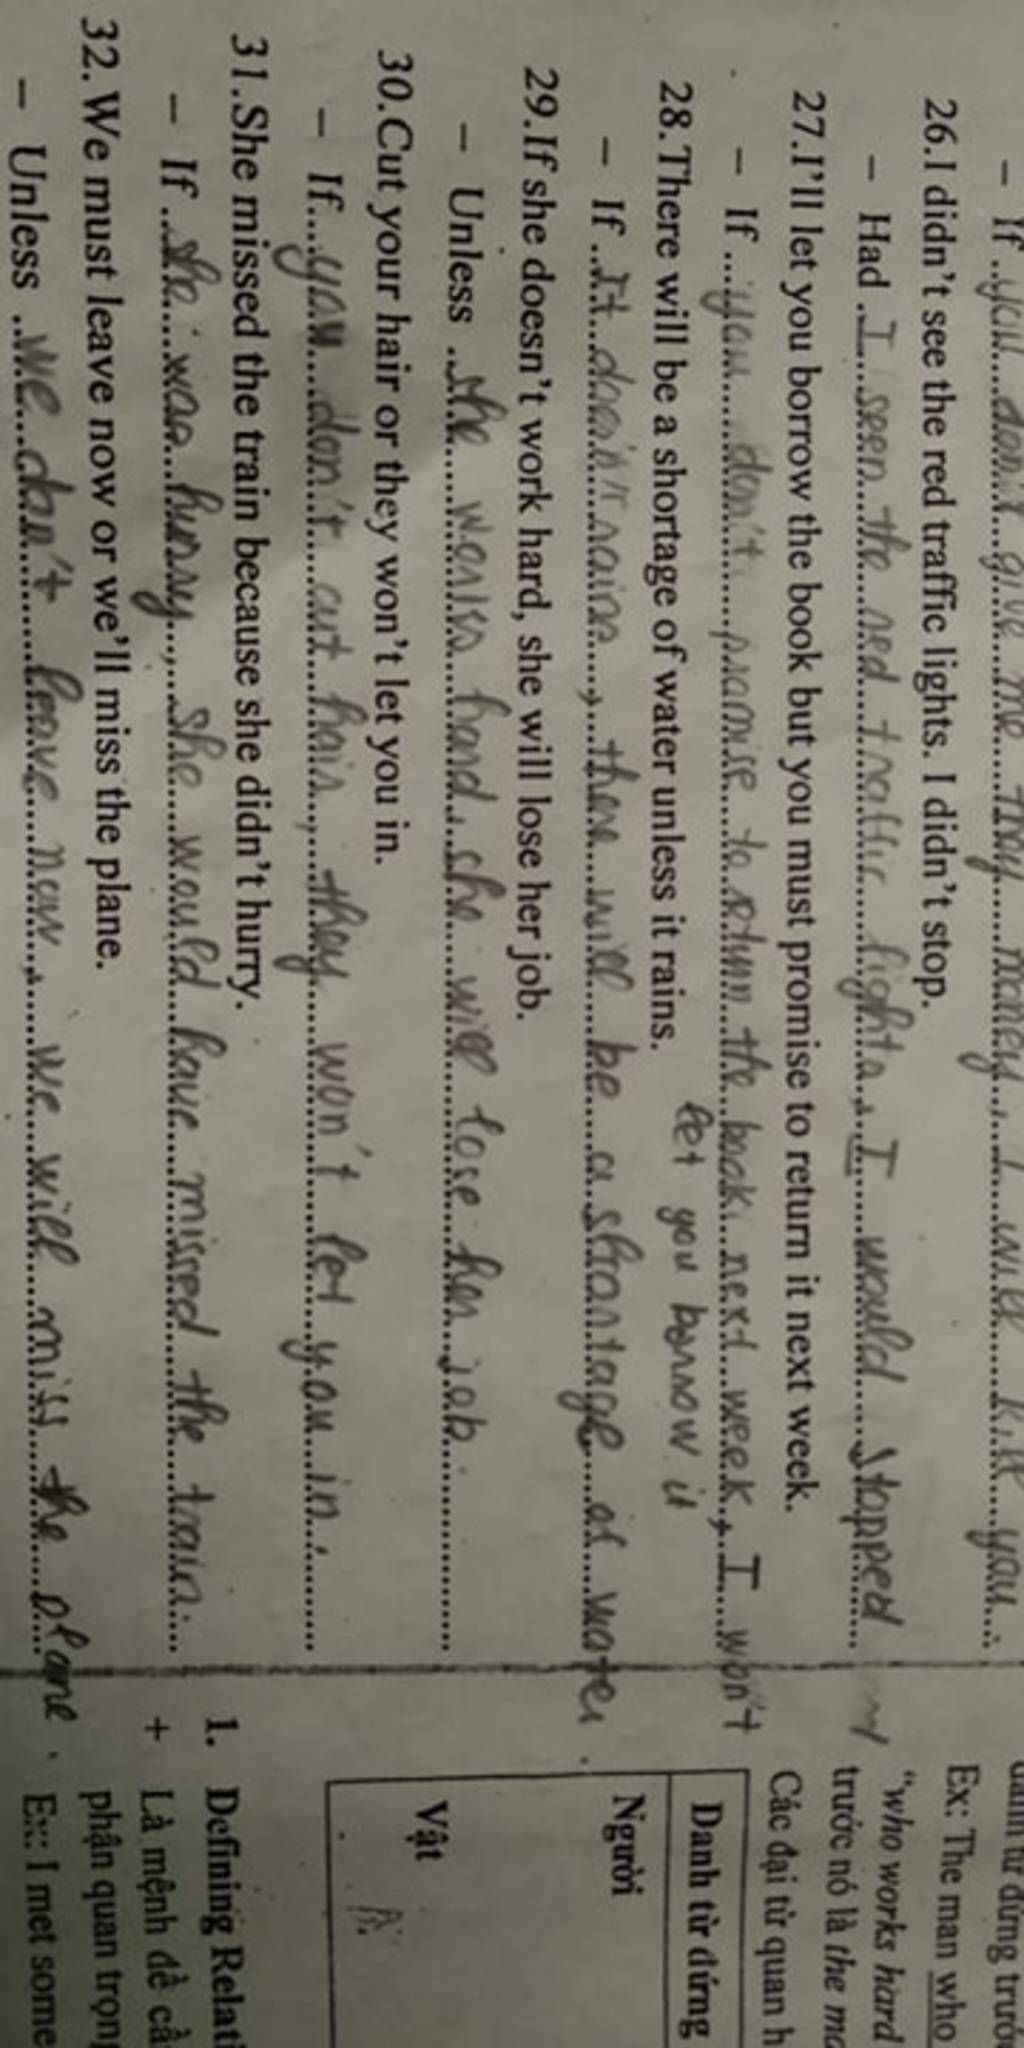 - If ..you....don't...give me.....my.....money..., I...will.......kill.....you...
26.I didn't see the red traffic lights. I didn't stop.
- Had ..I....seen...the....red....traffic...lights..., I.....would......stopped
27.I'll let you borrow the book but you must promise to return it next week.
- If ....you....don't....promise to return...the...book...next...week..., I....won't
let you borrow it
28.There will be a shortage of water unless it rains.
- If ..It...doesn't rains...., there...will....be...a...shortage...of...water.
29.If she doesn't work hard, she will lose her job.
- Unless ..she.....works...hard..., she....will....lose..her..job.
30.Cut your hair or they won't let you in.
- If....you....don't....cut hair..., they.....won't.....let...you...in.
31.She missed the train because she didn't hurry.
- If ...she...was...hurry..., she....would...have....missed...the...train...
32. We must leave now or we'll miss the plane.
- Unless ..we...don't......leave....now..., we....will....miss...the....plane.
Ex: The man who
"who works hard
trước nó là the
Các đại từ quan h
Danh từ đứng
Người
Vật
1. Defining Relati
+ Là mệnh đề
phận quan trọn
Ex: I met some